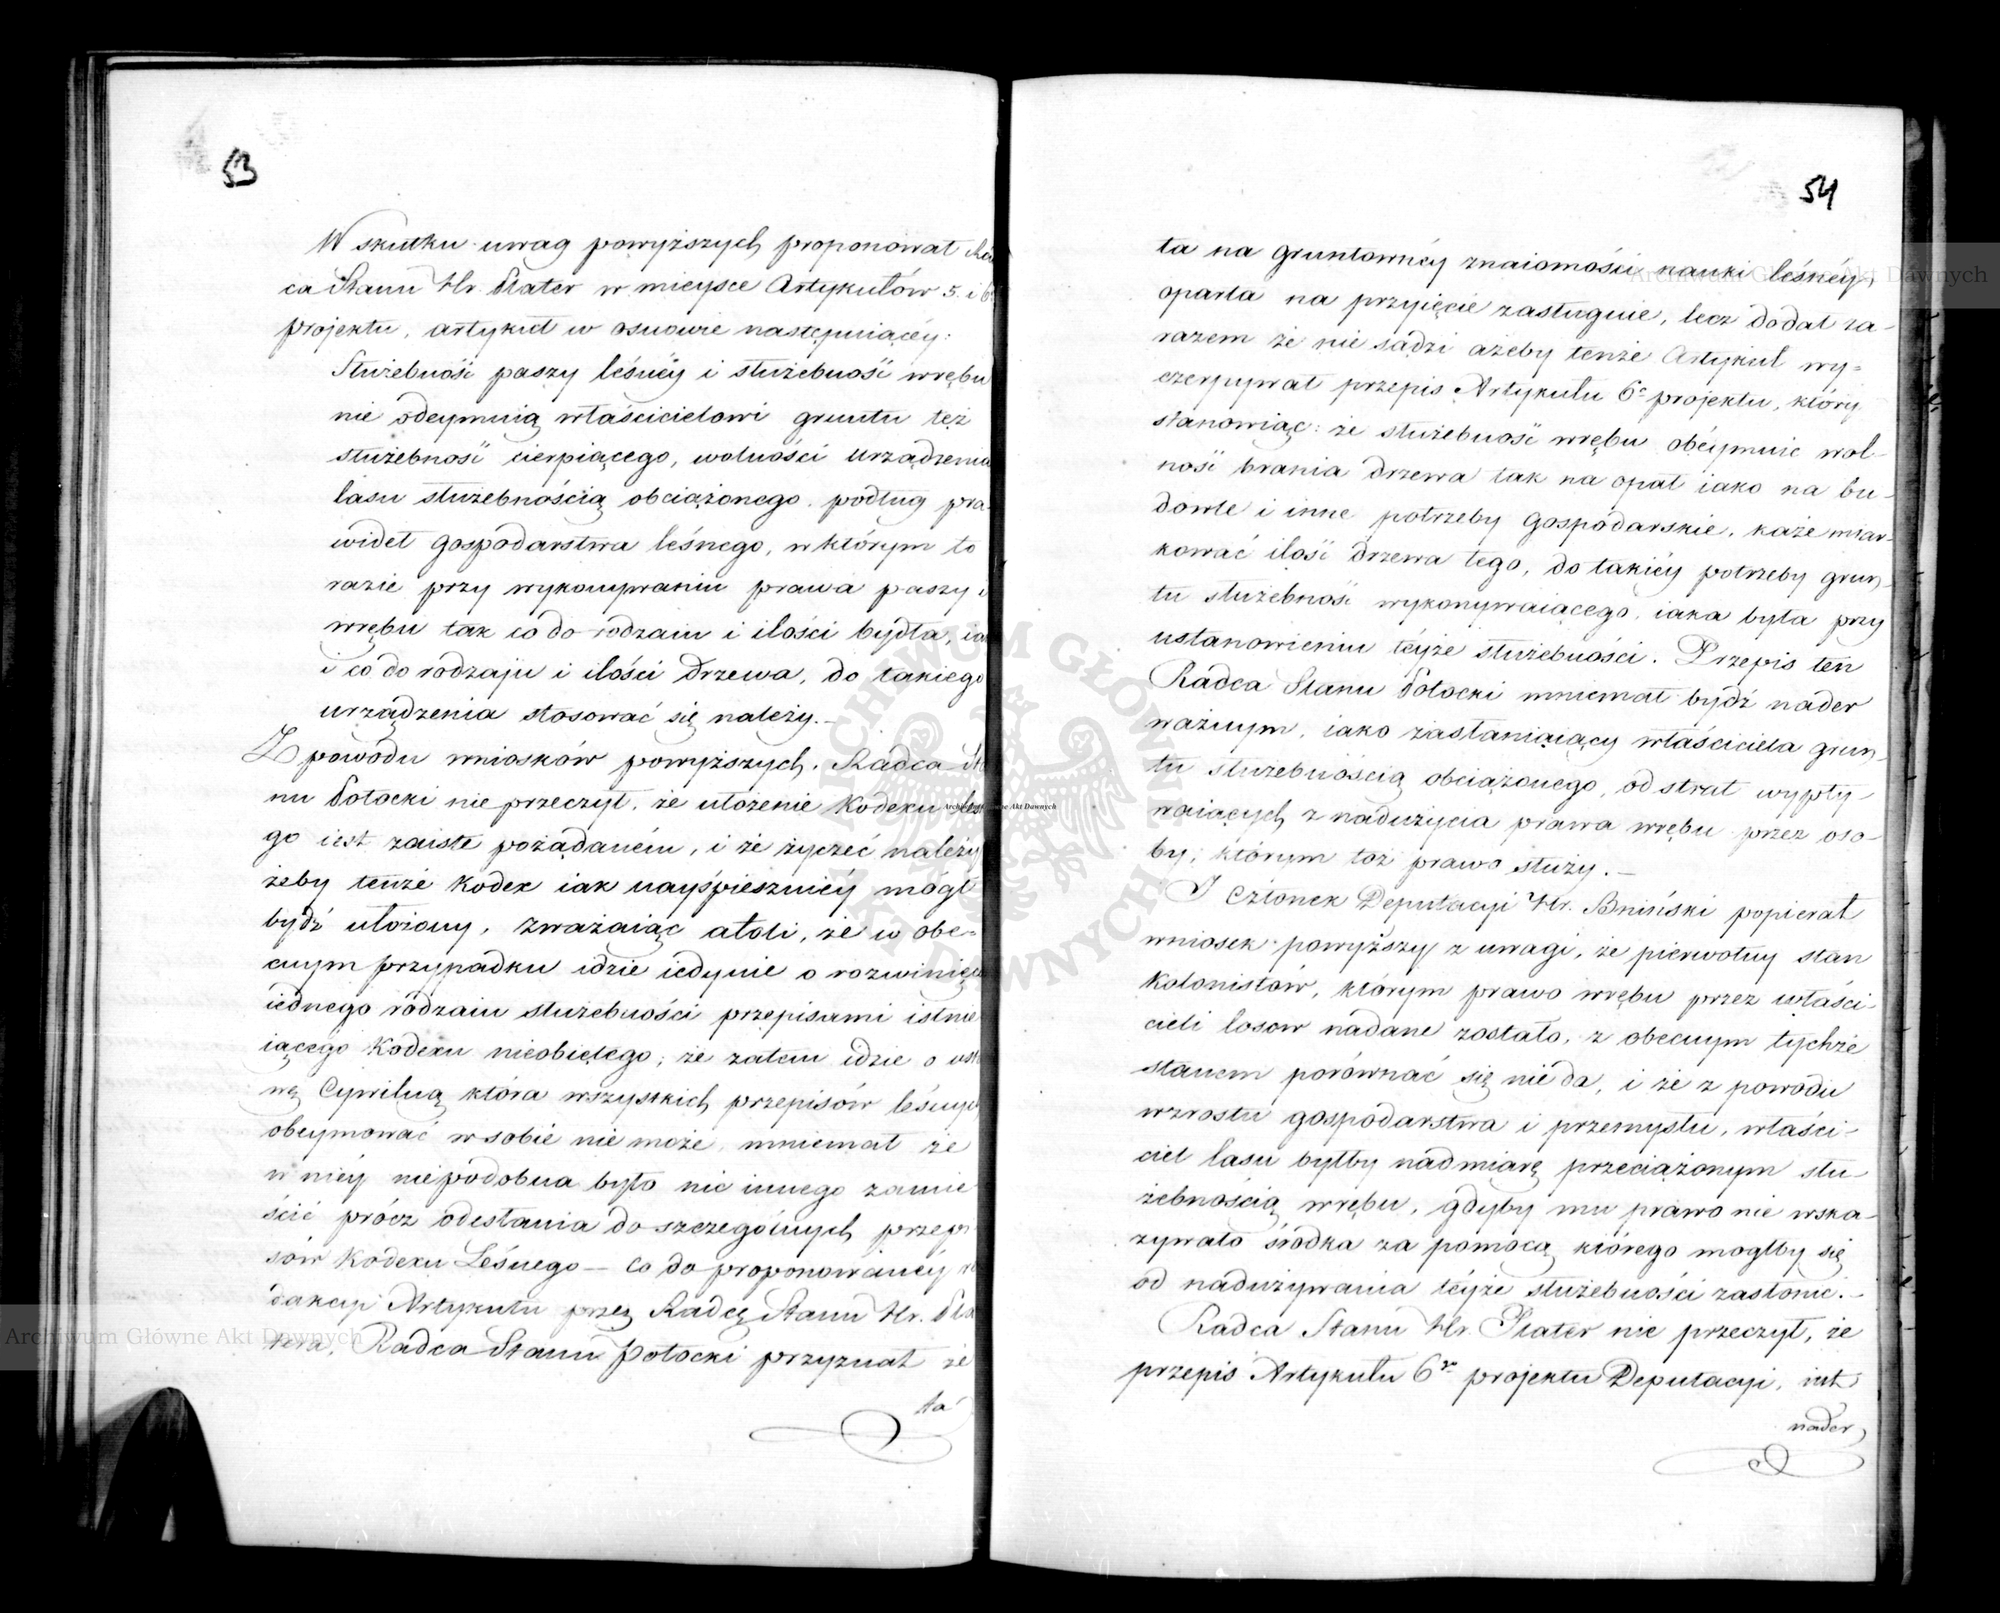 53
W skutku uwag powyższych proponował Rad
ca Stanu Hr. Plater w mieysce Artykułów 5. i 6.
projektu, artykuł w osnowie następuiącéy:
Służebność paszy leśnéy i służebność wrębu
nie odeymuią właścicielowi gruntu też
służebność cierpiącego, wolności urządzenia
lasu służebnością obciążonego, podług pra-
wideł gospodarstwa leśnego, w którym to
razie przy wykonywaniu prawa paszy i
wrębu tak co do rodzaiu i ilości bydła, iak
i co do rodzaju i ilości drzewa, do takiego
urządzenia stosować się należy.—
Z powodu wniosków powyższych, Radca Sta
nu Potocki nie przeczył, że ułożenie Kodexu Leśne
go iest zaiste pożądaném, i że życzeć należy
żeby tenże Kodex iak nayśpieszniéy mógł
bydź ułożony, zważaiąc atoli, że w obe=
cnym przypadku idzie iedynie o rozwinięcie
iednego rodzaiu służebności przepisami istnie
iącego Kodexu nieobiętego; że zatem idzie o usta
wę Cywilną która wszystkich przepisów leśnych
obeymować w sobie nie może, mniemał że
w niéy niepodobna było nic innego zamie
ścić prócz odesłania do szczególnych przepi
sów Kodexu Leśnego — Co do proponowanéy re
dakcyi Artykułu przez Radcę Stanu Hr. Pla
tera, Radca Stanu Potocki przyznał że
ta
54
ta na gruntownéy znaiomości nauki leśnéy
oparta na przyięcie zasługuie, lecz dodał za-
razem że nie sądzi ażeby tenże Artykuł wy=
czerpywał przepis Artykułu 6º projektu, który
stanowiąc: że służebność wrębu obéymuie wol-
ność brania drzewa tak na opał iako na bu-
dowle i inne potrzeby gospodarskie, każe miar-
kować ilość drzewa tego, do takiéy potrzeby grun-
tu służebność wykonywaiącego, iaka była przy
ustanowieniu téyże służebności. Przepis ten
Radca Stanu Potocki mniemał bydź nader
ważnym, iako zasłaniaiący właściciela grun-
tu służebnością obciążonego, od strat wypły-
waiących z nadużycia prawa wrębu przez oso-
by, którym toż prawo służy.—
I Członek Deputacyi Hr. Bniński popierał
wniosek powyższy z uwagi, że pierwotny stan
Kolonistów, którym prawo wrębu przez właści-
cieli losow nadane zostało, z obecnym tychże
stanem porównać się nie da, i że z powodu
wzrostu gospodarstwa i przemysłu, właści-
ciel lasu byłby nadmiarę przeciążonym słu-
żebnością wrębu, gdyby mu prawo nie wska-
zywało środka za pomocą którego mógłby się
od nadużywania téyże służebności zasłonić.—
Radca Stanu Hr. Plater nie przeczył, że
przepis Artykułu 6go projektu Deputacyi, iest
nader
Archiwum Główne Akt Dawnych
Archiwum Główne Akt Dawnych
Archiwum Główne Akt Dawnych
ARCHIWUM GŁÓWNE AKT DAWNYCH